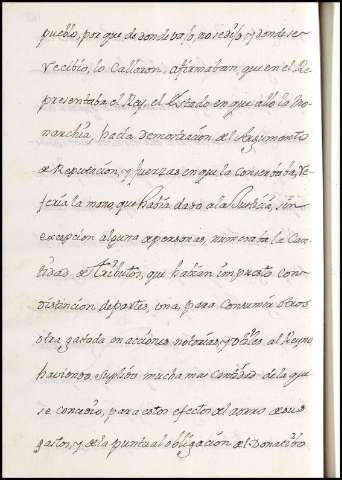 pueblo, por que de donde bajo, no se dijo, y donde se
recibio, lo Callaron, afirmaban, que en el Re-
presentaba al Rey, el Estado en que allò la Mo-
narchia, hacia Demostracion del Argumento
de Reputacion, y fuerzas en que la Conserbaba, Re-
feria la mano, que habia dado a la Justicia, sin
excepcion alguna de personas, numeraba la Can-
tidad de Tributos, que habian impuesto con
distincion de partes, una, para Consumir
otra gastada en acciones notorias, y utiles al Reyno
haviendo Suplido mucha mas Cantidad de la que
se concedio, para estos efectos del aorro de sus
gastos, y de la puntual obligacion del Donatibo